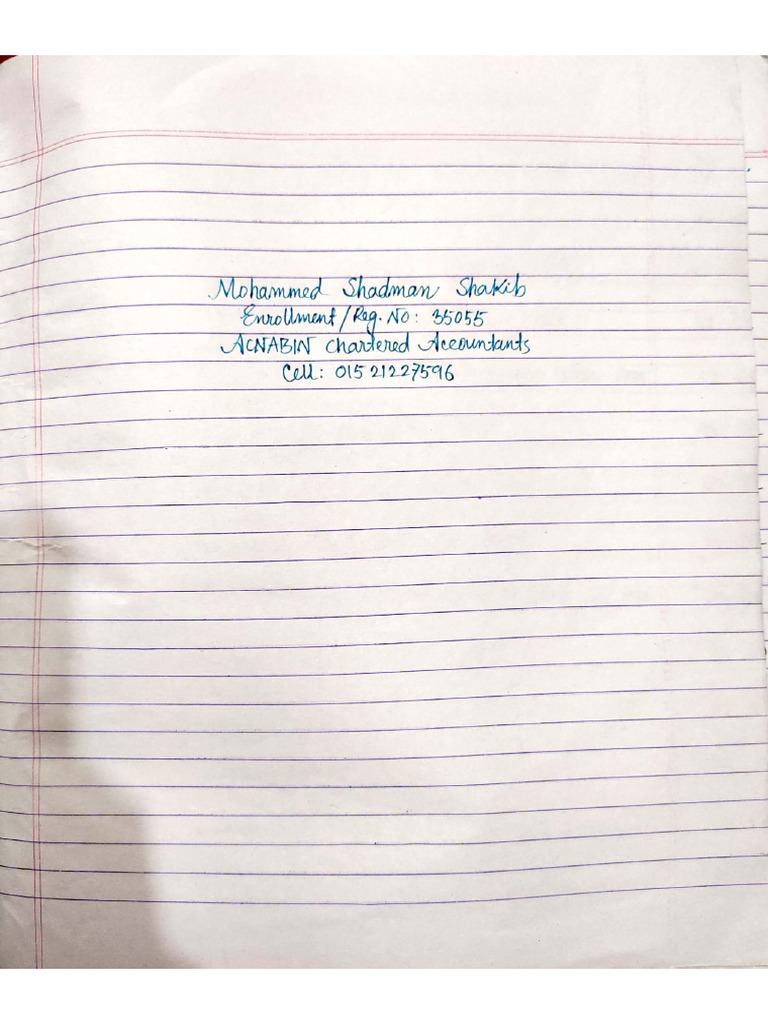 Mohammed Shadman Shakib
Enrollment/Reg. No: 35055
ACNABIN Chartered Accountants
Cell: 01521227596